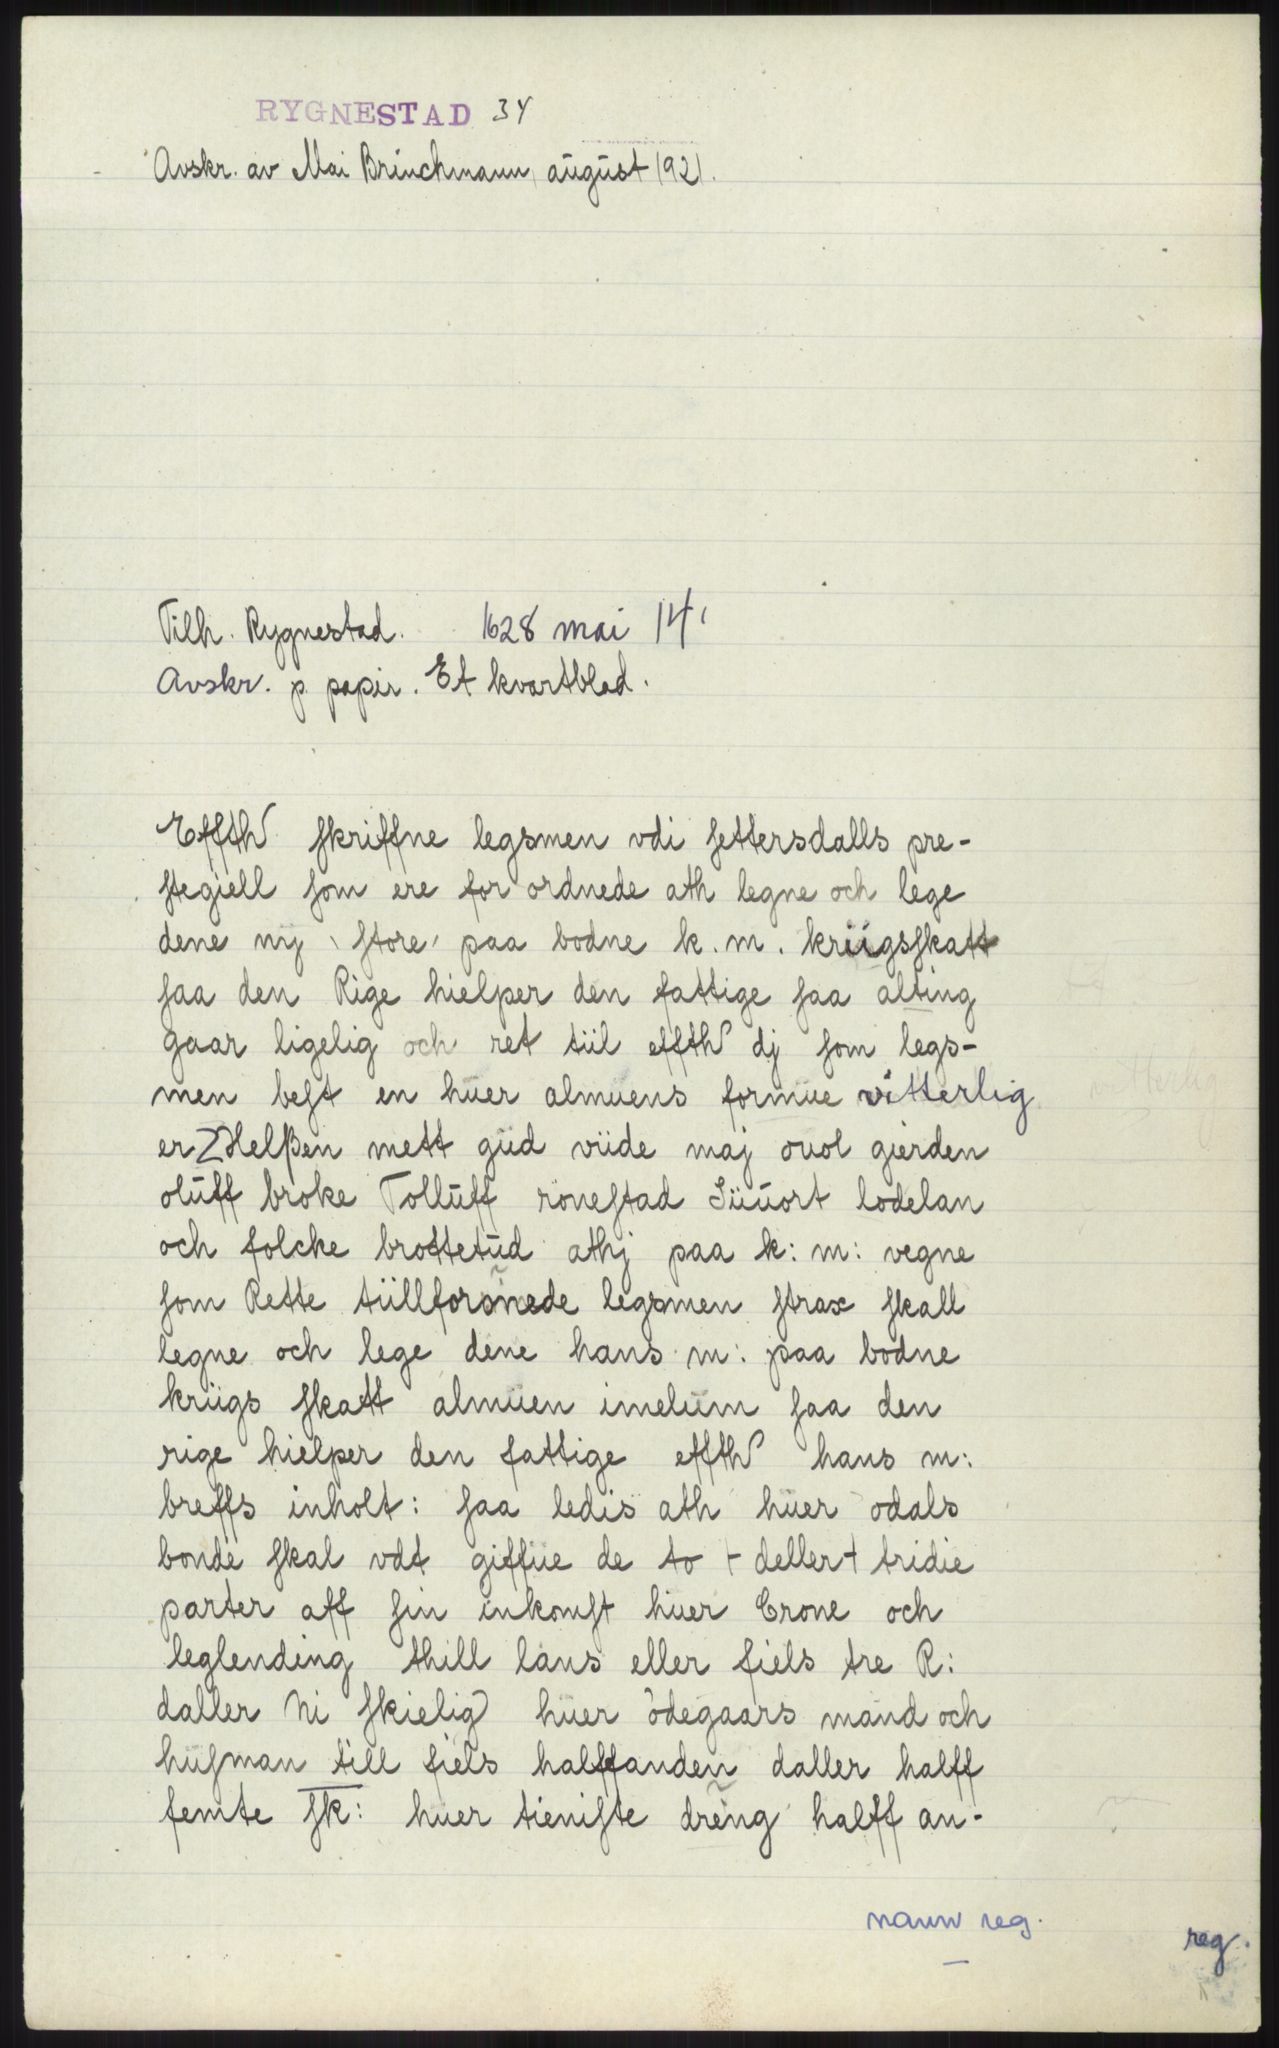 RYGNESTAD 34
Avskr. av Mai Brinchmann, august 1921.
Tilh. Rygnestad. 1628 mai 14.
Avskr. p. papir. Et kvartblad.
Effth ſkriffne legsmen vdi ſettersdalls pre-
ſtegiell ſom ere for ordnede ath legne och lege
dene nÿ ſtore paa bodne k. m. kriigsſkatt
ſaa den Rige hielper den fattige ſaa alting
gaar ligelig och ret tiil effth dj ſom legs-
men beſt en huer almuens formue vitterlig
er Helßen mett gud viide maj ouol gierden
oluff broke Tolluff röneſtad Siiuort lodelan
och folcke brottetud athj paa k: m: vegne
ſom Rette tiillforönede legsmen ſtrax ſkall
legne och lege dene hans m: paa bodne
kriigs ſkatt almuen imelum ſaa den
rige hielper den fattige effth hans m:
breffs inholt: ſaa ledis ath huer odals
bonde ſkal vdt giffue de to + deller + tridie
parter aff ſin inkomſt huer Crone och
leglending thill láns eller fiels tre R:
daller ni ſkielig huer ödegaars mand och
huſman till fiels halffanden daller halff
femte ſk: huer tieniſte dreng halff an-
navn reg.
reg.